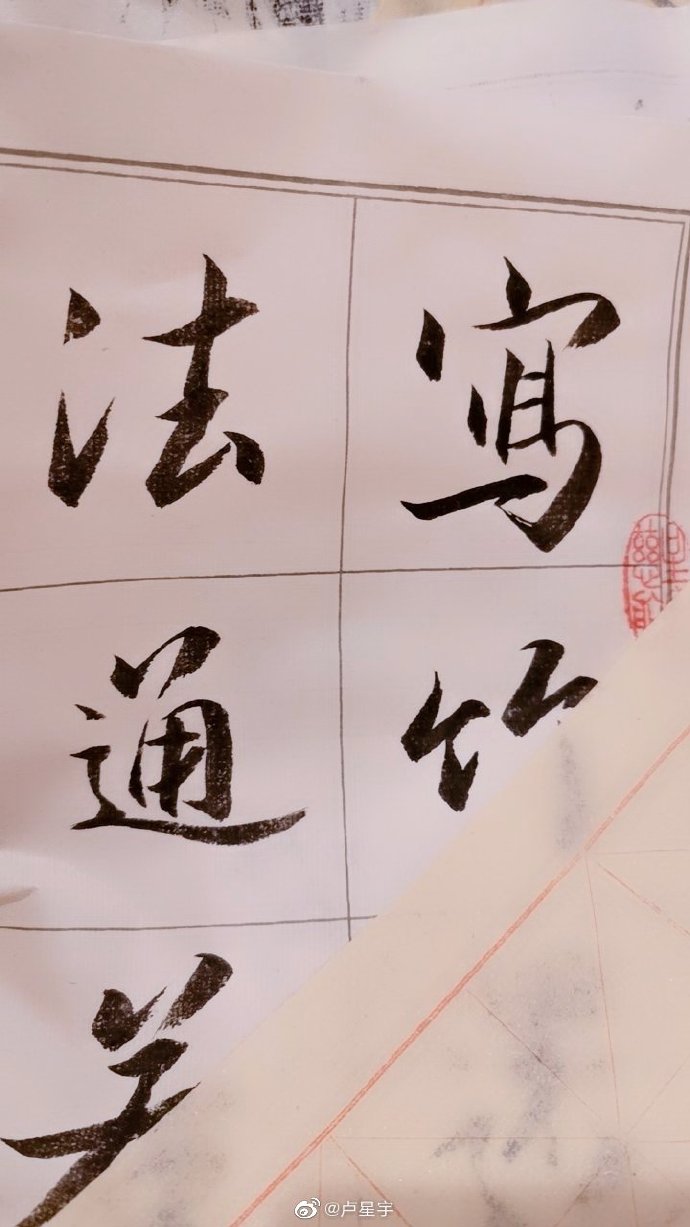 寫竹
法通关
@卢星宇